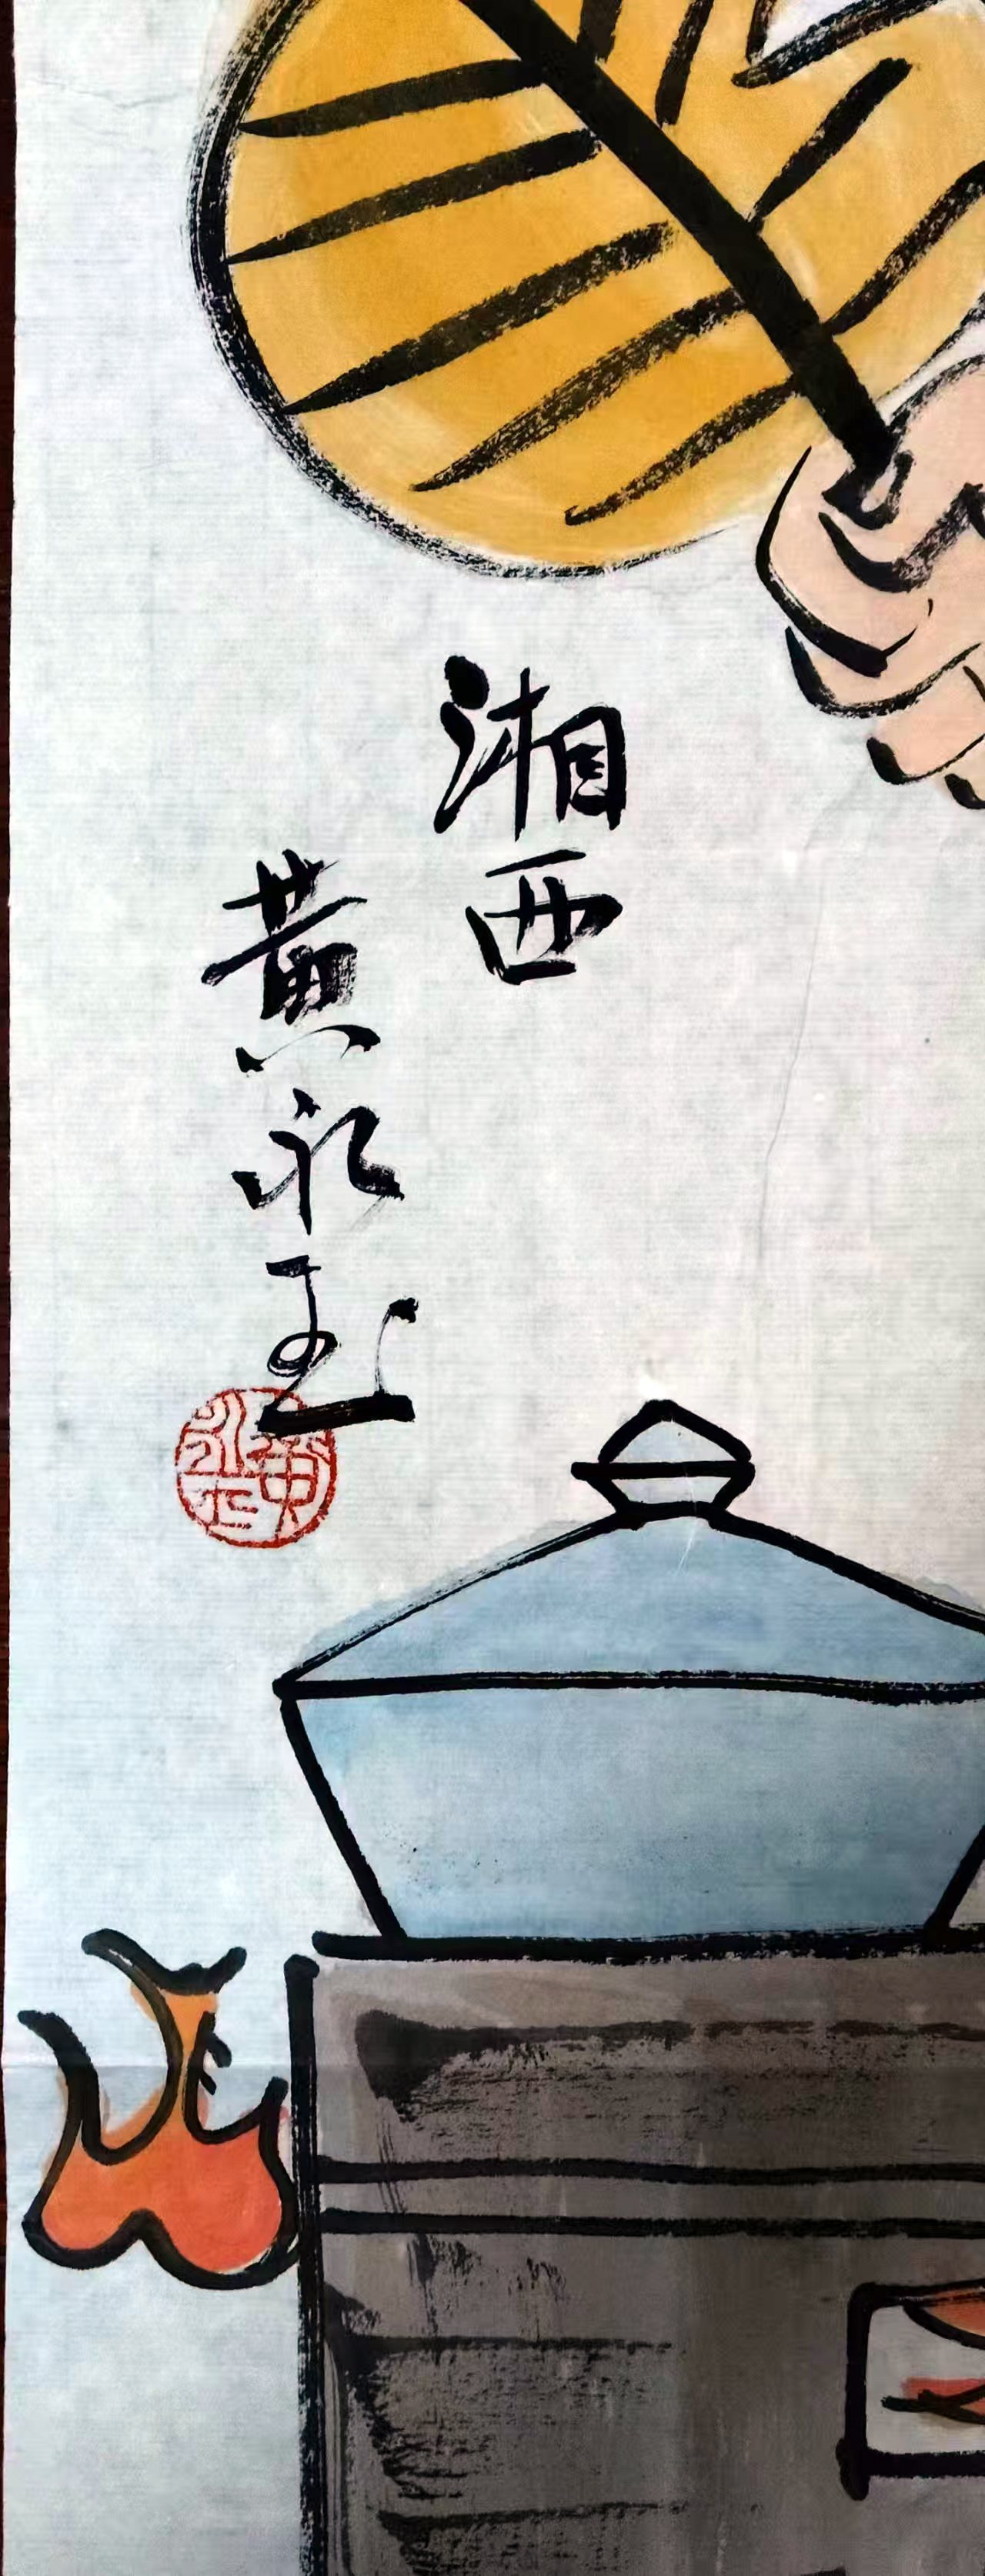 湘西
黄永玉